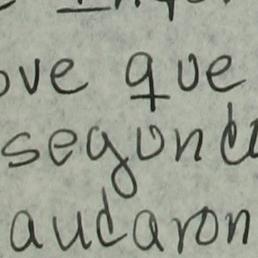 ove que
segund
audaron